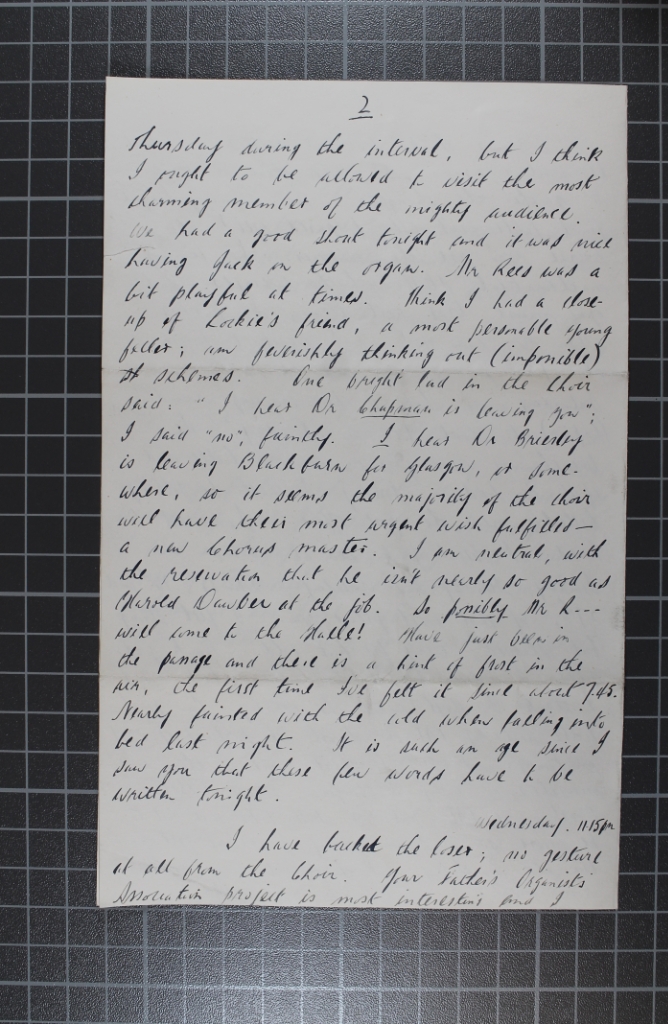 2
Thursday during the interval, but I think
I ought to be allowed to visit the most
charming member of the mighty audience.
We had a good shout tonight and it was nice
having Jack on the organ. Mr Rees was a
bit playful at times. Think I had a close-
up of Lockie's friend, a most personable young
feller; am feverishly thinking out (impossible)
schemes. One bright lad in the Choir
said: "I hear Dr Chapman is leaving you";
I said "no", faintly. I hear Dr Brierley
is leaving Blackburn for Glasgow, or some-
where, so it seems the majority of the choir
will have their most urgent wish fulfilled -
a new Chorus master. I am neutral, with
the reservation that he isn't nearly so good as
Harold Dawber at the job. So possibly Mr R---
will come to the Hallé! Have just been in
the passage and there is a hint of frost in the
air, the first time I've felt it since about 7.45.
Nearly fainted with the cold when falling into
bed last night. It is such an age since I
saw you that these few words have to be
written tonight.
Wednesday. 11.15pm
I have backed the loser; no gesture
at all from the Choir. Your Father's Organists
Association project is most interesting and I